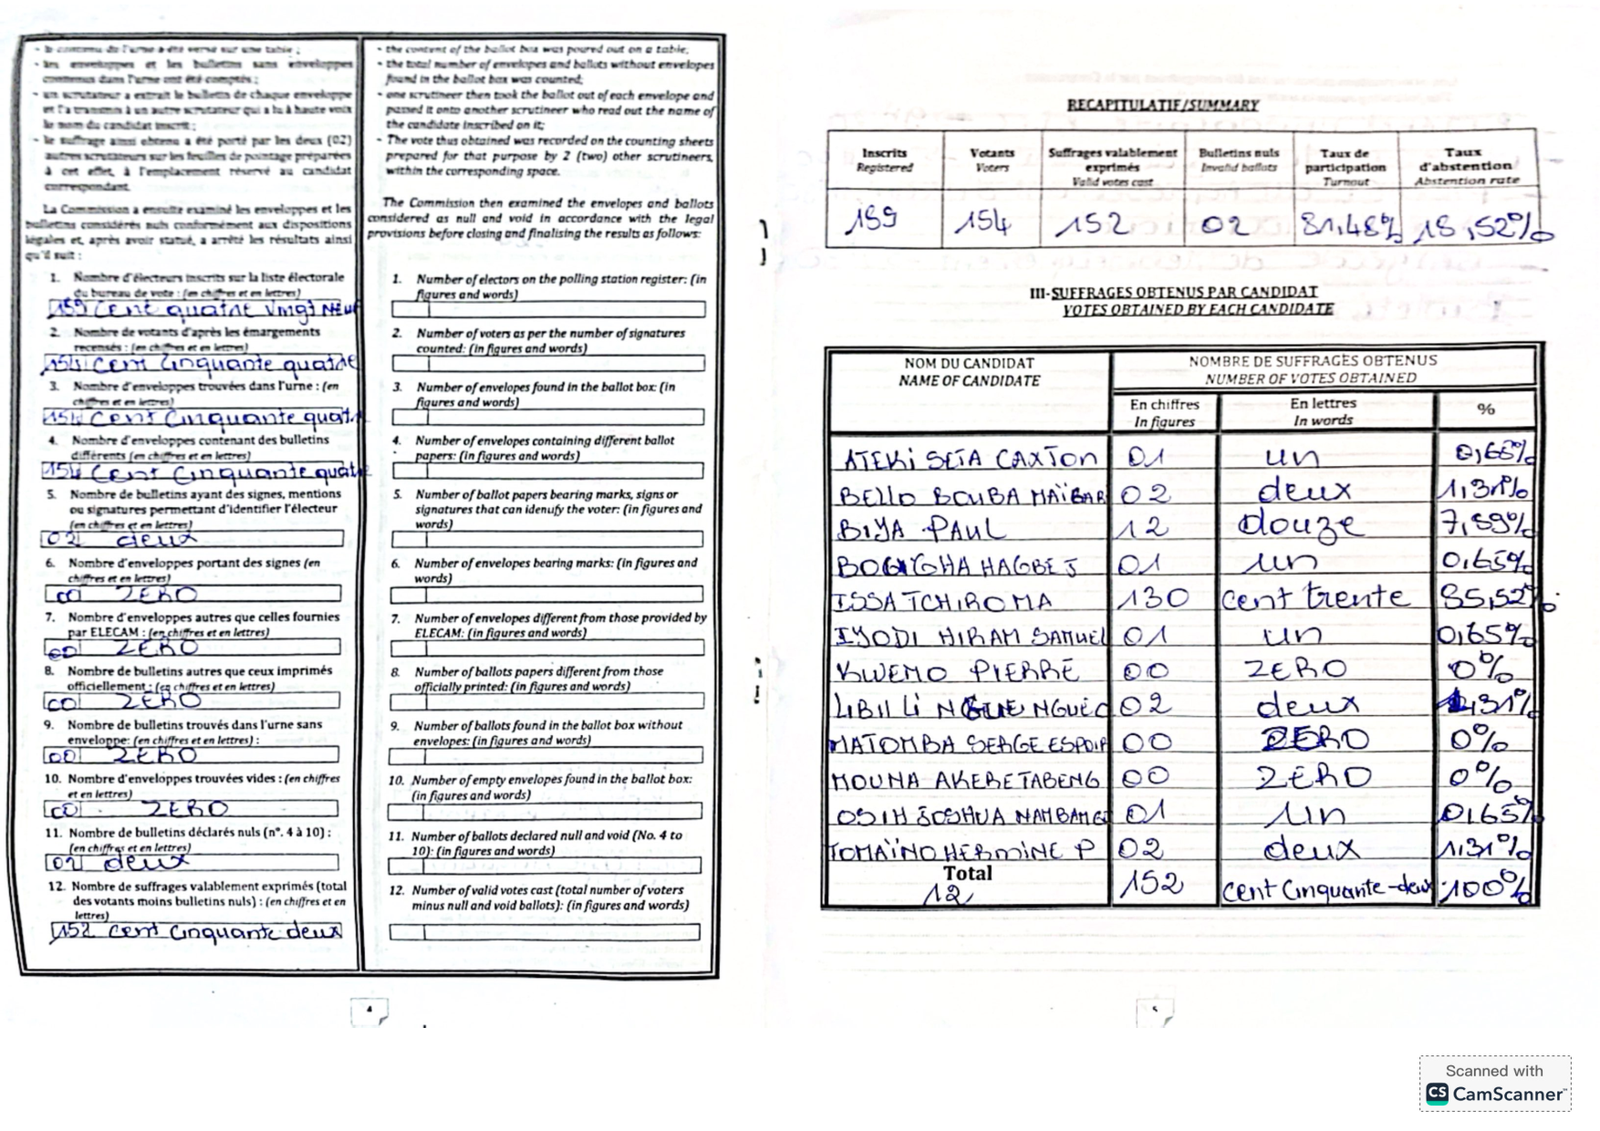 - le contenu de l'urne a été versé sur une table ;
- les enveloppes et les bulletins sans enveloppes
contenus dans l'urne ont été comptés ;
- un scrutateur a extrait le bulletin de chaque enveloppe
et l'a transmis à un autre scrutateur qui a lu à haute voix
le nom du candidat inscrit ;
- le suffrage ainsi obtenu a été porté par les deux (02)
autres scrutateurs sur les feuilles de pointage préparées
à cet effet, à l'emplacement réservé au candidat
correspondant.
La Commission a ensuite examiné les enveloppes et les
bulletins considérés nuls conformément aux dispositions
légales et, après avoir statué, a arrêté les résultats ainsi
qu'il suit :
1. Nombre d'électeurs inscrits sur la liste électorale
du bureau de vote : (en chiffres et en lettres)
189 Cent quatre Vingt Neuf
2. Nombre de votants d'après les émargements
recensés : (en chiffres et en lettres)
154 Cent Cinquante quatre
3. Nombre d'enveloppes trouvées dans l'urne : (en
chiffres et en lettres)
154 Cent Cinquante quatre
4. Nombre d'enveloppes contenant des bulletins
différents (en chiffres et en lettres)
154 Cent Cinquante quatre
5. Nombre de bulletins ayant des signes, mentions
ou signatures permettant d'identifier l'électeur
(en chiffres et en lettres)
02 deux
6. Nombre d'enveloppes portant des signes (en
chiffres et en lettres)
00 ZERO
7. Nombre d'enveloppes autres que celles fournies
par ELECAM : (en chiffres et en lettres)
00 ZERO
8. Nombre de bulletins autres que ceux imprimés
officiellement : (en chiffres et en lettres)
00 ZERO
9. Nombre de bulletins trouvés dans l'urne sans
enveloppe: (en chiffres et en lettres) :
00 ZERO
10. Nombre d'enveloppes trouvées vides : (en chiffres
et en lettres)
00 ZERO
11. Nombre de bulletins déclarés nuls (n°. 4 à 10) :
(en chiffres et en lettres)
02 deux
12. Nombre de suffrages valablement exprimés (total
des votants moins bulletins nuls) : (en chiffres et en
lettres)
152 cent Cinquante deux
- the content of the ballot box was poured out on a table;
- the total number of envelopes and ballots without envelopes
found in the ballot box was counted;
- one scrutineer then took the ballot out of each envelope and
passed it onto another scrutineer who read out the name of
the candidate inscribed on it;
- The vote thus obtained was recorded on the counting sheets
prepared for that purpose by 2 (two) other scrutineers,
within the corresponding space.
The Commission then examined the envelopes and ballots
considered as null and void in accordance with the legal
provisions before closing and finalising the results as follows:
1. Number of electors on the polling station register: (in
figures and words)
2. Number of voters as per the number of signatures
counted: (in figures and words)
3. Number of envelopes found in the ballot box: (in
figures and words)
4. Number of envelopes containing different ballot
papers: (in figures and words)
5. Number of ballot papers bearing marks, signs or
signatures that can idenufy the voter: (in figures and
words)
6. Number of envelopes bearing marks: (in figures and
words)
7. Number of envelopes different from those provided by
ELECAM: (in figures and words)
8. Number of ballots papers different from those
officially printed: (in figures and words)
9. Number of ballots found in the ballot box without
envelopes: (in figures and words)
10. Number of empty envelopes found in the ballot box:
(in figures and words)
11. Number of ballots declared null and void (No. 4 to
10): (in figures and words)
12. Number of valid votes cast (total number of voters
minus null and void ballots): (in figures and words)
4
RECAPITULATIF/SUMMARY
Inscrits Votants Suffrages valablement exprimés Bulletins nuls Taux de participation Taux d'abstention
Registered Voters Valid votes cast Invalid ballots Turnout Abstention rate
189 154 152 02 81,48% 18,52%
III- SUFFRAGES OBTENUS PAR CANDIDAT
VOTES OBTAINED BY EACH CANDIDATE
NOM DU CANDIDAT NOMBRE DE SUFFRAGES OBTENUS
NAME OF CANDIDATE NUMBER OF VOTES OBTAINED
En chiffres En lettres %
In figures In words
ATEKI SETA CAXTON 01 un 0,65%
BELLO BOUBA MAÏGAR 02 deux 1,31%
BIYA PAUL 12 douze 7,89%
HAGBEJ 01 un 0,65%
ISSA TCHIROMA 130 cent trente 85,52%
IYODI HIRAM SAMUEL 01 un 0,65%
KWEMO PIERRE 00 ZERO 0%
LIBII LI 02 deux 1,31%
MATOMBA SERGE ESPOIR 00 ZERO 0%
MOUNA AKERE TABENG 00 ZERO 0%
OSIH JOSHUA NAMBANG 01 un 0,65%
TOMAÏNO HERMINE P 02 deux 1,31%
Total
12 152 cent Cinquante-deux 100%
5
Scanned with
CS CamScanner